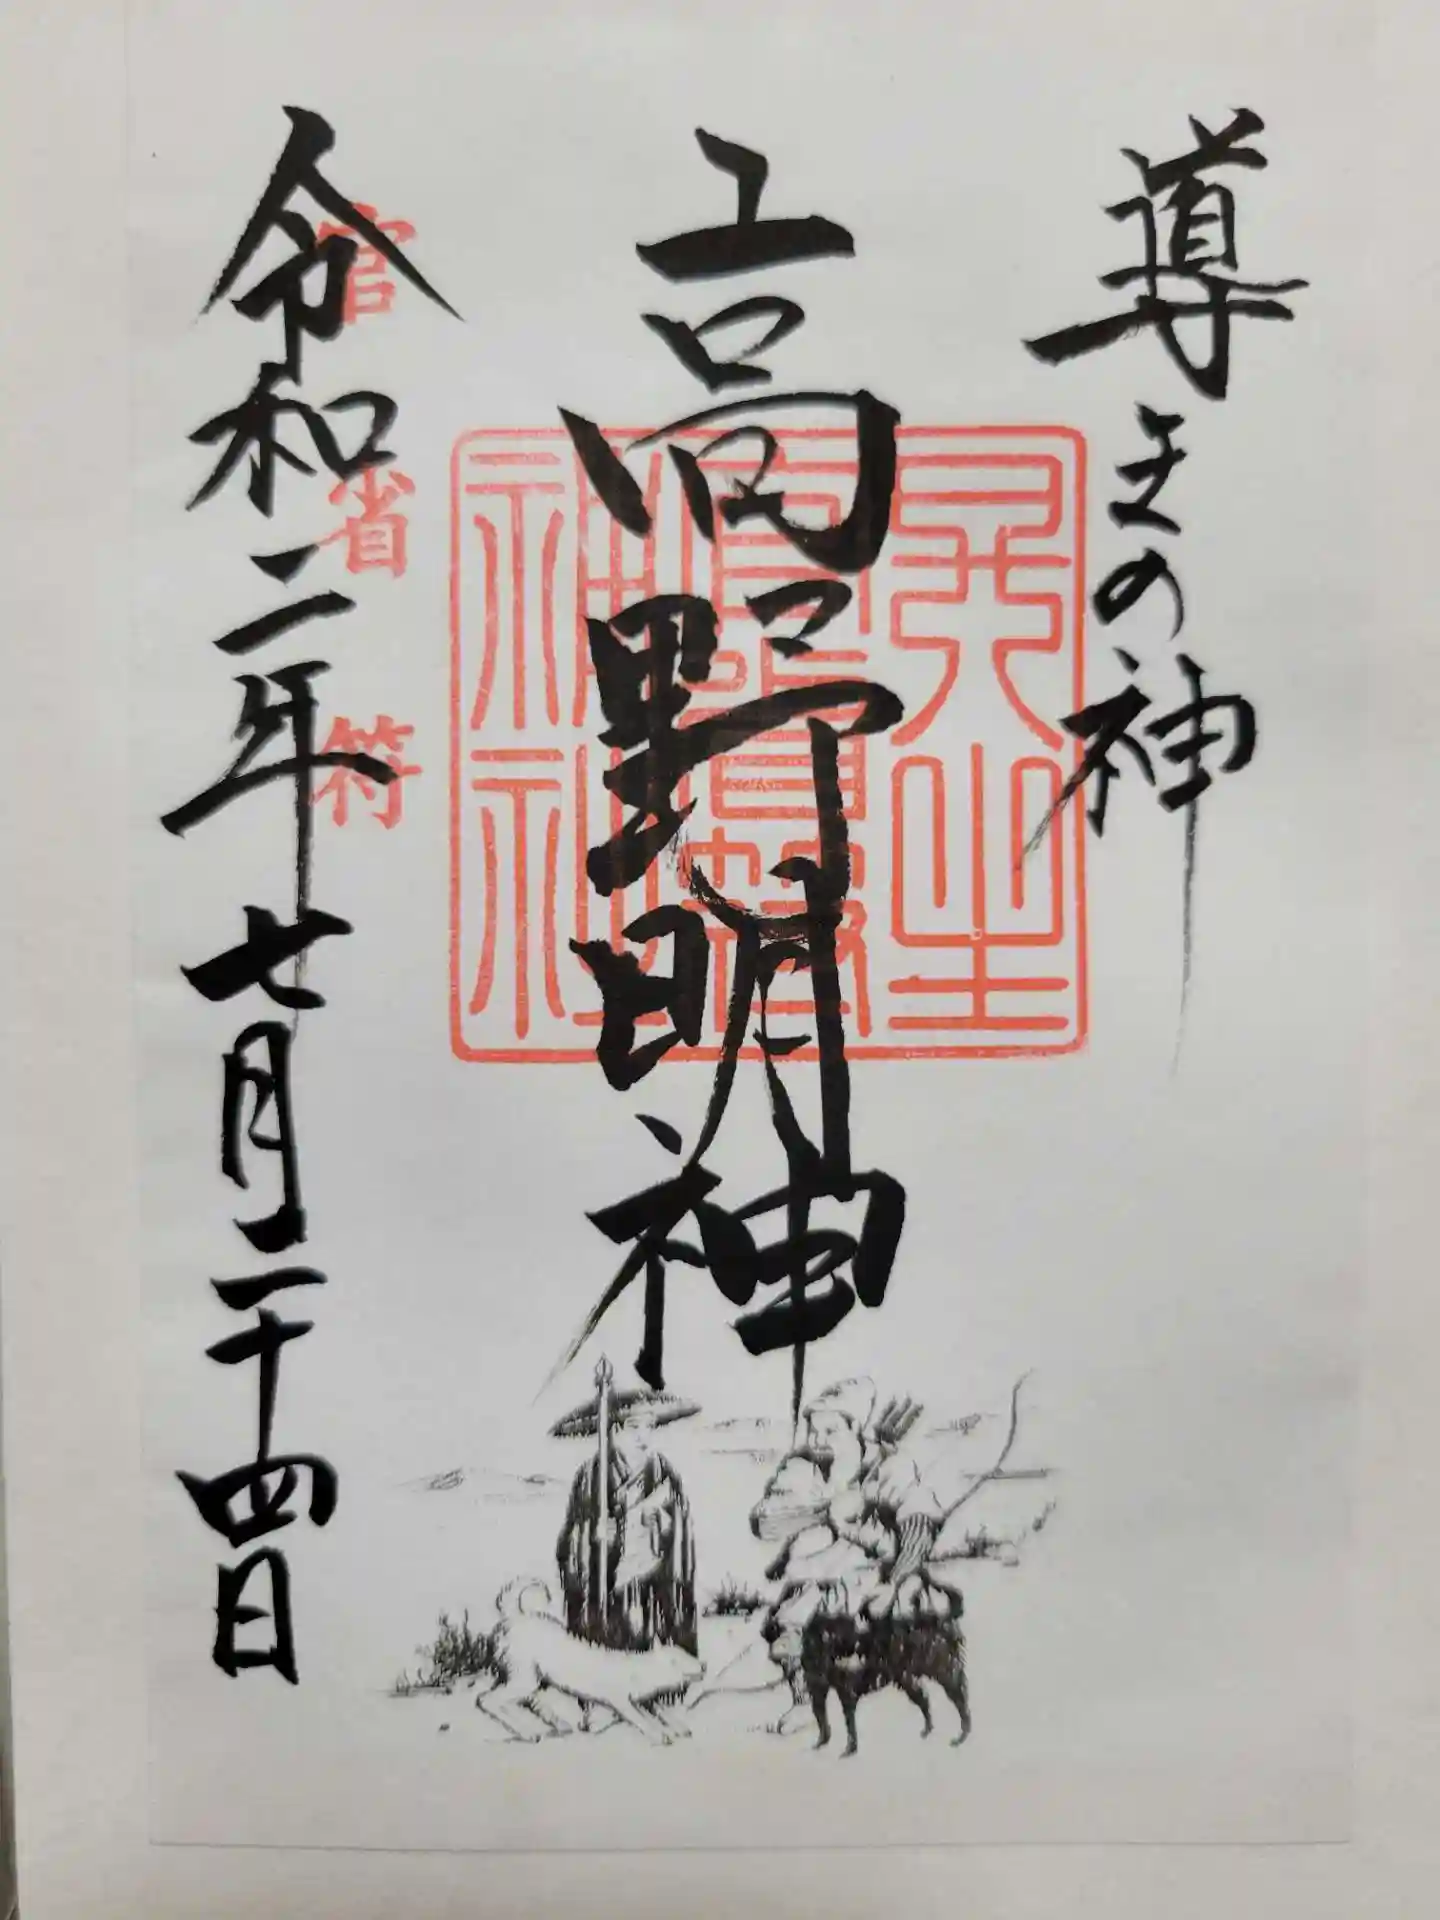 導きの神
高野明神
令和二年七月二十四日
官省符
神社